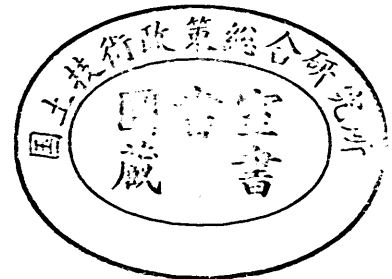 国土技術政策総合研究所
圖書室
蔵書